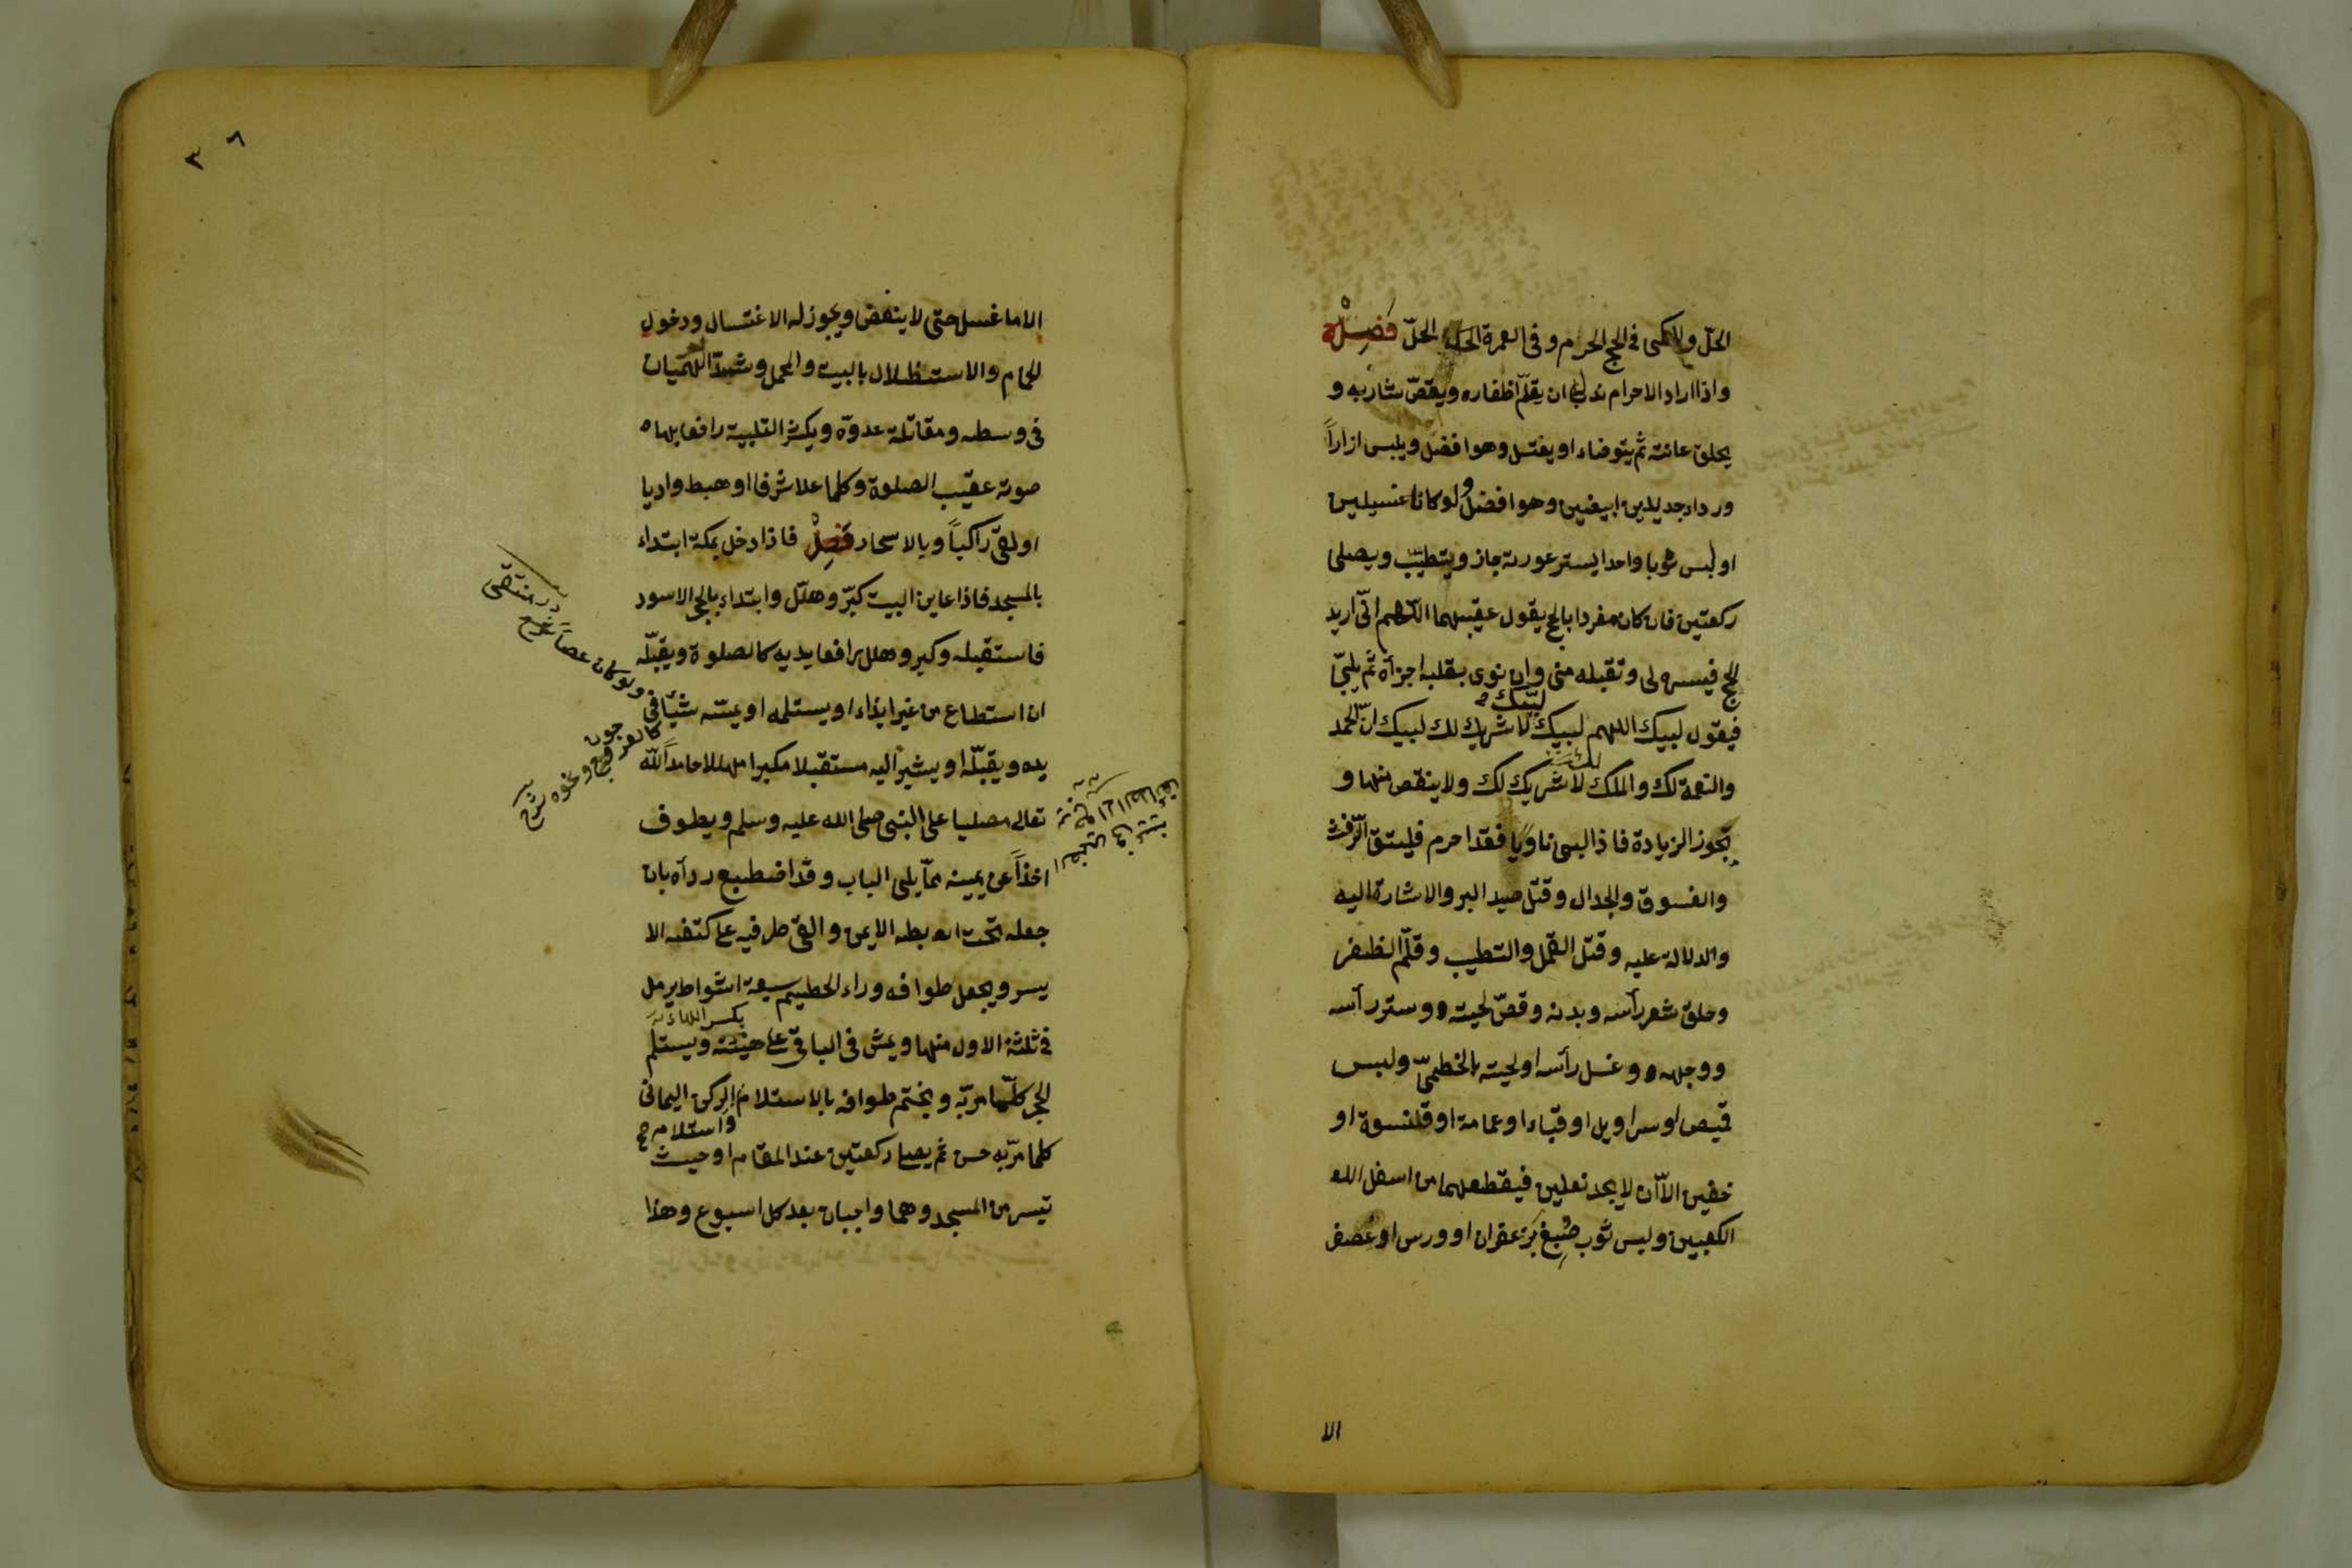 الحلّ وللمكى فى الحج الحرم وفى العمرة الحل فصل
واذا اراد الاحرام ندب ان يقلّم اظفاره ويقصّ شاربه و
يحلق عانته ثم يتوضاء او يغتسل وهو افضل ويلبس ازاراً
ورداء جديدين ابيضين وهو افضل ولو كانا غسيلين
او لبس ثوبا واحدا يستر عورته جاز ويتطيّب ويصلى
ركعتين فان كان مفردا بالحج يقول عقيبهما اللّهم انّى اريد
الحج فيسره لى وتقبله منى وان نوى بقلبه اجزأه ثم يلبّى
فيقول لبيك اللهم لبيك لبّيك لا شريك لك لبيك انّ الحمد
والنعمة لك والملك لا شريك لك ولا ينقص منها و
تجوز الزيادة فاذا لبى ناويا فقد احرم فليتق الرّفث
والفسوق والجدال وقتل صيد البر والاشارة اليه
والدلالة عليه وقتل القمل والتطيب وقلّم الظفر
وحلق شعر رأسه وبدنه وقصّ لحيته وستر رأسه
ووجهه وغسل رأسه او لحيته بالخطمىّ ولبس
قميص او سراويل او قباء او عمامة او قلنسوة او
خفين الاّ ان لا يجد نعلين فيقطعهما من اسفل
الكعبين ولبس ثوب صُبِغ بزعفران او ورس او عصفر
الا
٣٨
الا ما غسل حتى لا ينفض ويجوز له الاغتسال ودخول
الحمام والاستظلال بالبيت والمحمل وشدّ الهميان
فى وسطه ومقاتلة عدوّه ويكثر التلبية رافعا بها
صوته عقيب الصلوة وكلما علا شرفا او هبط واديا
او لقى راكباً وبالاسحار فصل فاذا دخل بمكة ابتداء
بالمسجد فاذا عاين البيت كبّر وهلّل وابتداء بالحجر الاسود
فاستقبله وكبر وهلل رافعا يديه كالصلوة ويقبّله
ان استطاع من غير ايذاء او يستلمه او يمسّه شيئا فى
يده ويقبّله او يشير اليه مستقبلا مكبرا مهللا حامداً للّه
تعالى مصليا على النبى صلى الله عليه وسلم ويطوف
اخذاً عن يمينه ممّا يلى الباب وقد اضطبع ردآه بان
جعله تحت ابطه الايمن والقى طرفيه على كتفه الا
يسر ويجعل طوافه وراء الحطيم سبعة اشواط يرمل
فى ثلثة الاول منها ويمش فى الباقى على هينته ويستلم
بكسر الهاء
الحجر كلّما مرّ به ويختم طوافه بالاستلام الركن اليمانى
واستلام صح
كلما مرّ به حسن ثم يصلى ركعتين عند المقام او حيث
تيسر من المسجد وهما واجبان بعد كل اسبوع وهذا
ولو كان عصا
در منتقى
كالعرجون
ونحوه شرح